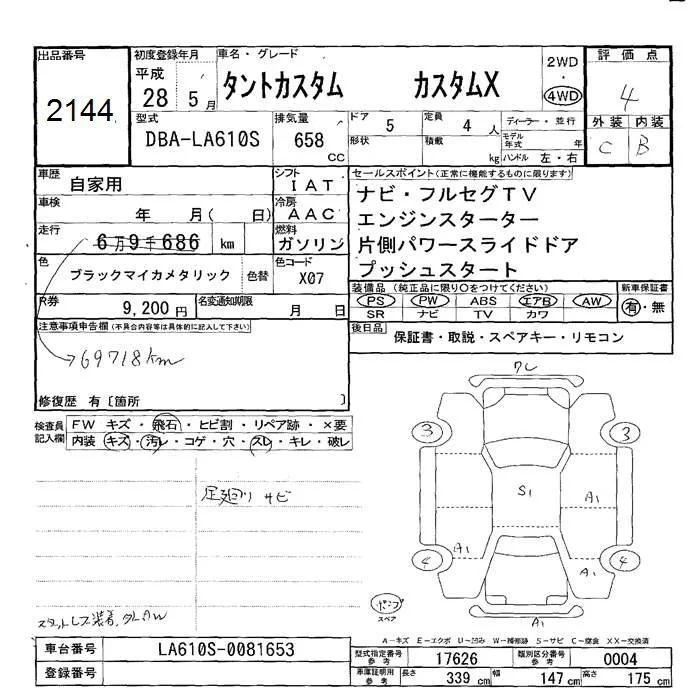 出品番号
2144
初度登録年月
平成
28 5月
車名・グレード
タントカスタム カスタムX
2WD
・
4WD
評価点
4
外装 内装
C B
型式
DBA-LA610S
排気量
658
CC
ドア
5
定員
4 人
形状
積載
kg
ディーラー・並行
モデル年式 年
ハンドル 左・右
車歴
自家用
シフト
IAT
車検
年 月( 日)
冷房
AAC
走行
6万9千686 km
燃料
ガソリン
色
ブラックマイカメタリック
色替
色コード
X07
R券
9,200円
名変通知期限
月 日
セールスポイント(正常に機能するものに限ります)
ナビ・フルセグTV
エンジンスターター
片側パワースライドドア
プッシュスタート
装備品(純正品に限り○をつけてください)
PS PW ABS エアB AW
SR ナビ TV カワ
新車保証書
有・無
後日品
保証書・取説・スペアキー・リモコン
注意事項申告欄(不具合内容等は具体的に記入して下さい)
69718km
修復歴 有〔箇所 〕
検査員記入欄
FW キズ・飛石・ヒビ割・リペア跡・×要
内装 キズ・汚レ・コゲ・穴・スレ・キレ・破レ
足廻りサビ
スタットレス装着,夕レAW
ワレ
3 3
S1
A1
A1
A1
4 4
A1
パンプ
スペア
A-キズ E-エクボ U-凹み W-補修跡 S-サビ C-腐食 XX-交換済
車台番号
LA610S-0081653
登録番号
型式指定番号
参考
17626
類別区分番号
参考
0004
車庫証明用
参考
長さ 339 cm 幅 147 cm 高さ 175 cm